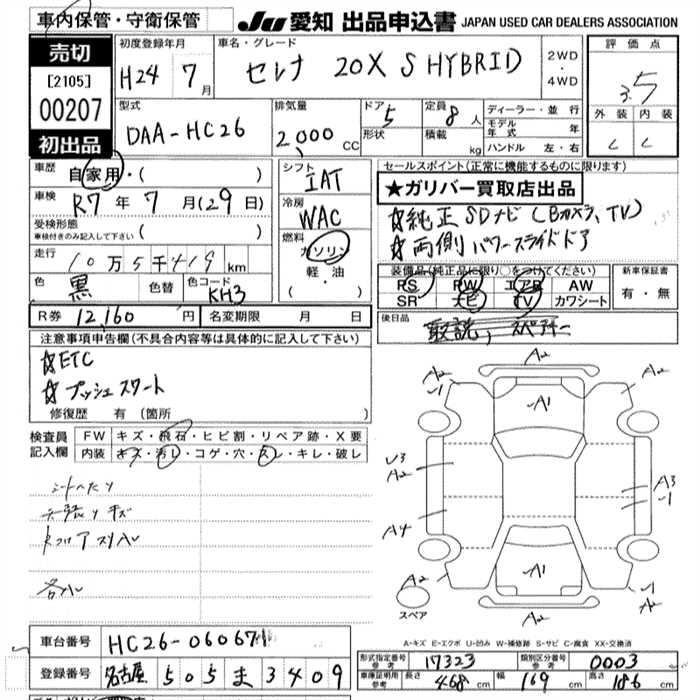 車内保管・守衛保管
JU 愛知 出品申込書 JAPAN USED CAR DEALERS ASSOCIATION
売切
[2105]
00207
初出品
初度登録年月
H24 7月
車名・グレード
セレナ 20X S HYBRID
2WD
・
4WD
評価点
3.5
外装 内装
C C
型式
DAA-HC26
排気量
2,000 CC
ドア 5
形状
定員 8人
積載 kg
ディーラー・並行
モデル年式 年
ハンドル 左・右
車歴 自家用・( )
車検 R7年 7月(29日)
受検形態
車検付きのみ記入して下さい ( )
走行 10万5千419km
色 黒 色替 色コード KH3
R券 12,160円 名変期限 月 日
シフト
IAT
冷房
WAC
燃料
ガソリン
軽・油
( ・ )
セールスポイント(正常に機能するものに限ります)
★ガリバー買取店出品
☆純正SDナビ(Bカメラ、TV)
☆両側パワースライドドア
装備品(純正品に限り○をつけてください)
PS PW エアB AW
SR ナビ TV カワシート
新車保証書
有・無
後日品
取説, スペアキー
注意事項申告欄(不具合内容等は具体的に記入して下さい)
☆ETC
☆プッシュスタート
修復歴 有(箇所 )
検査員記入欄
FW キズ・飛石・ヒビ割・リペア跡・X要
内装 キズ・汚レ・コゲ・穴・スレ・キレ・破レ
シートヘタリ
天張リキズ
A2
A2
A1
A2
A2
A3
A4
A1
A2
A2
A2
スペア
A-キズ E-エクボ U-凹み W-補修跡 S-サビ C-腐食 XX-交換済
車台番号 HC26-060671
登録番号 名古屋 505 ま 3409
形式指定番号 参考 17323 類別区分番号 参考 0003
車庫証明用 参考 長さ 468cm 幅 169cm 高さ 186cm